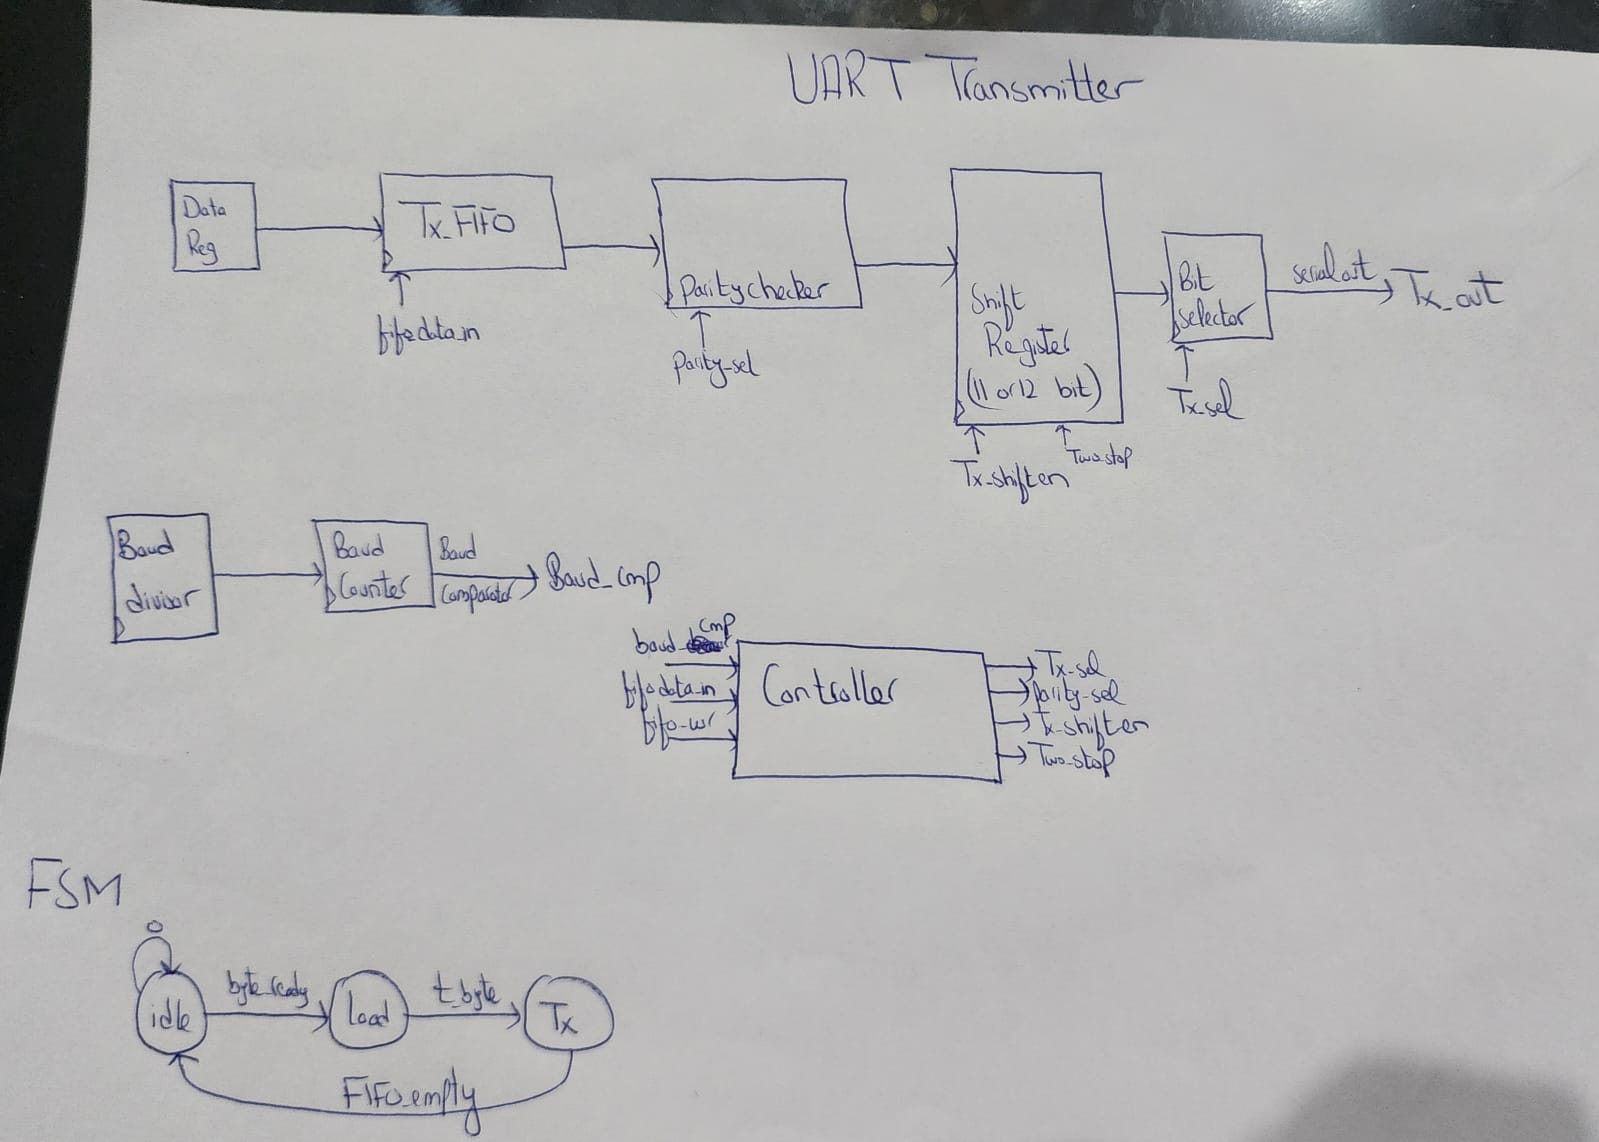 UART Transmitter
Data
Reg
Tx_FIFO
fifodata_in
Paritychecker
Parity-sel
Shift
Register
(11 or 12 bit)
Tx-shiften
Two_stop
Bit
selector
Tx_sel
serialout
Tx_out
Baud
divisor
Baud
Counter
Baud
Comparator
Baud_cmp
baud_cmp
fifodata_in
fifo-wr
Controller
Tx-sel
parity-sel
Tx-shiften
Two_stop
FSM
0
idle
byte_ready
load
t_byte
Tx
FIFO_empty